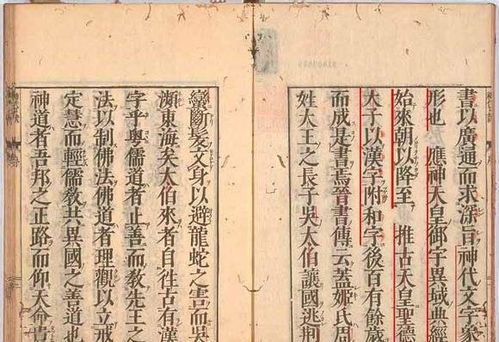 書以廣通而求深旨神代文字象
形也 應神天皇御宇異域典經
始來朝以降至 推古天皇聖德
大子以漢字附和字後百有餘歲
而成是書焉晉書傳云蓋姬氏周
姓大王之長子吳太伯讓國逃荆
蠻斷髮文身以避龍蛇之害而吳
瀕東海矣太伯來者自徃古有漢
字乎粤儒道者止善而敎先王之
法以制佛法佛道者理觀以立戒
定慧而輕儒敎共異國之善道也
神道者吾邦之正路而仰天命貴